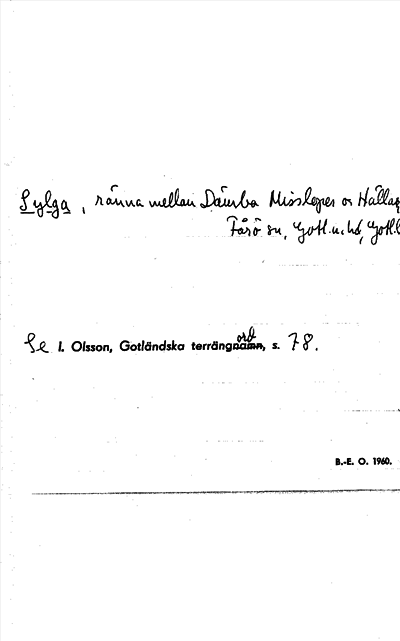 Sylga, ränna mellan Dämba Misslopes o Hallag
Fårö sn, Gotl. n. hd, Gotl. l
Se I. Olsson, Gotländska terrängord, s. 78.
B.-E. O. 1960.